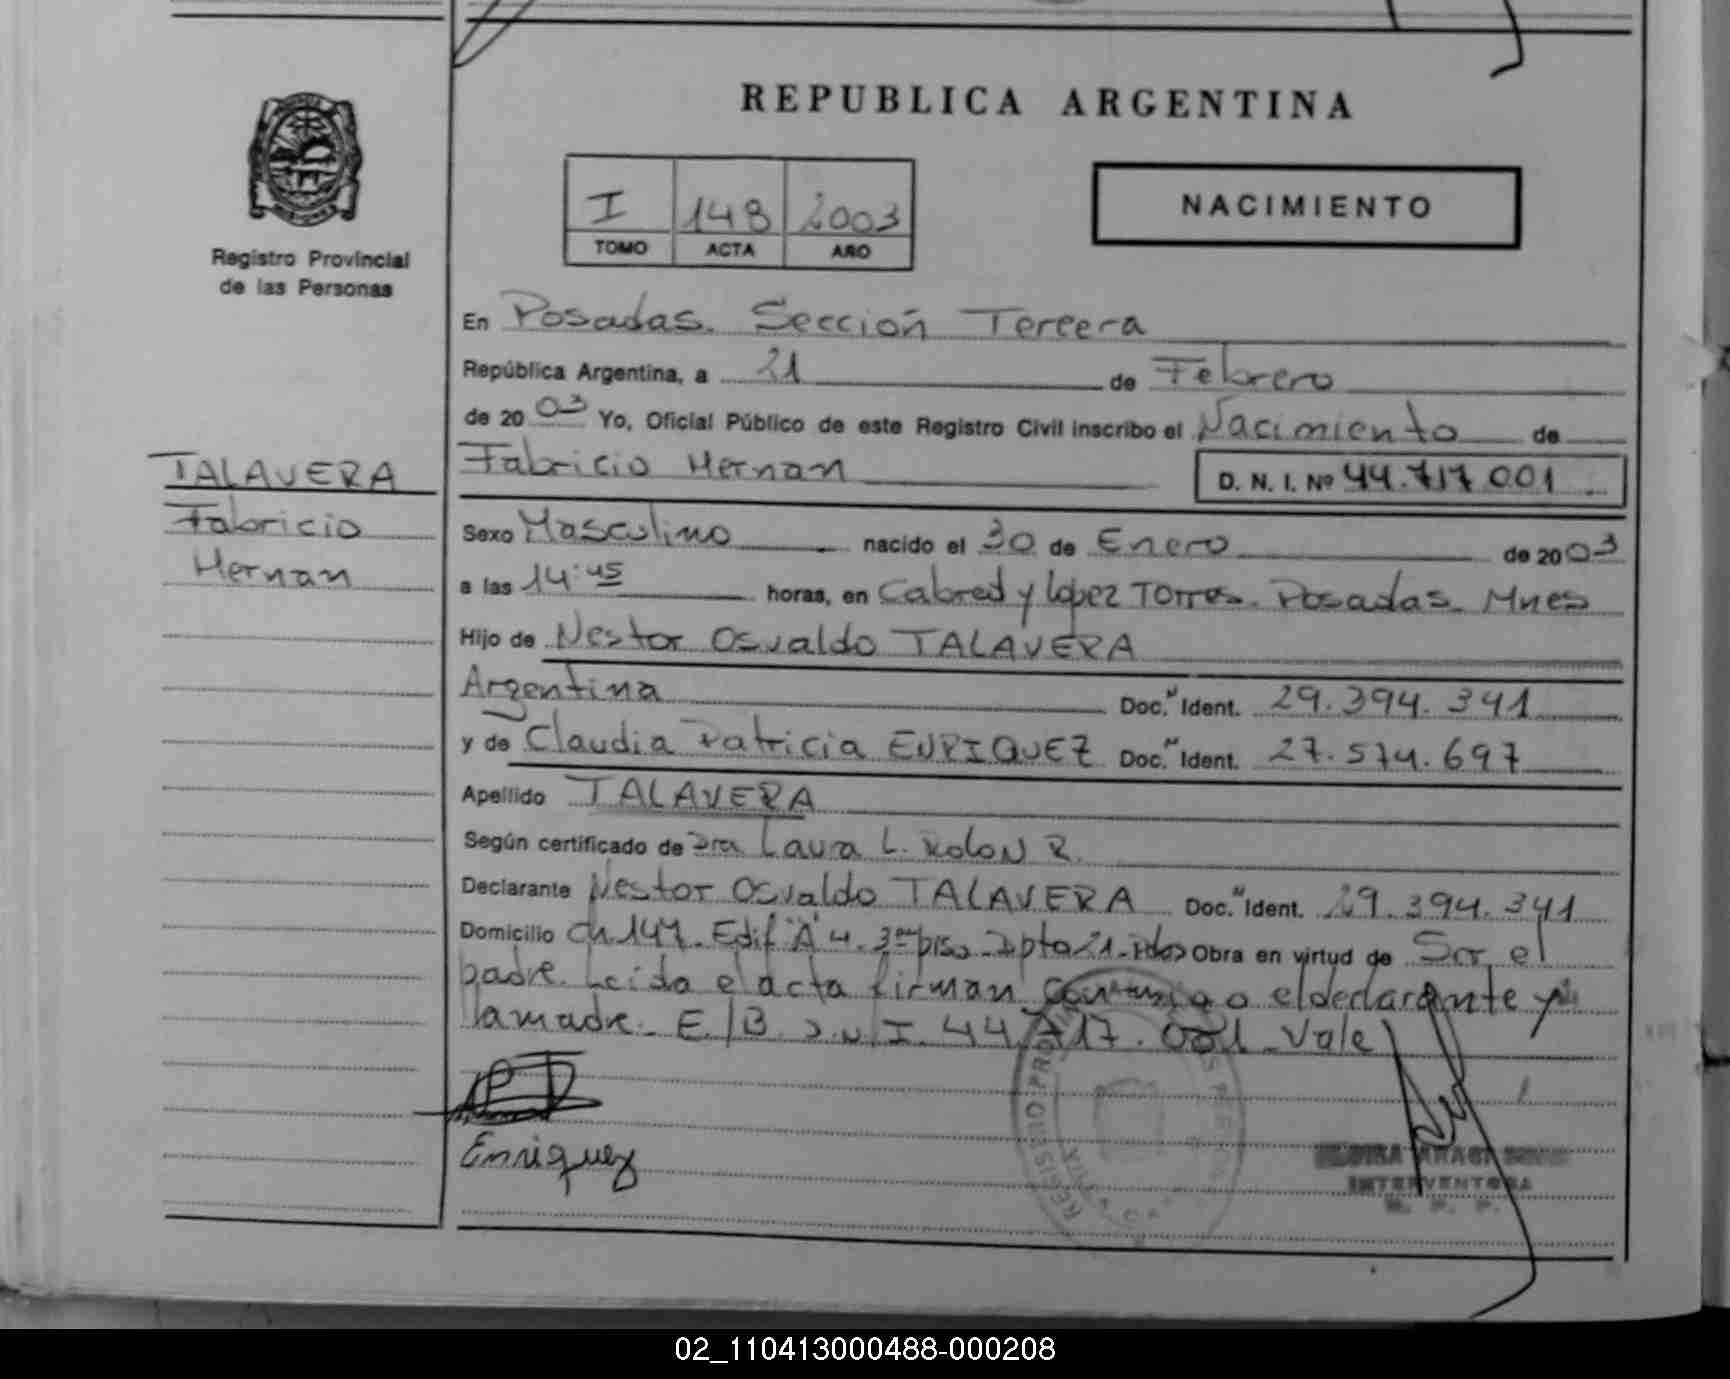 REPUBLICA ARGENTINA
I 148 2003
TOMO ACTA AÑO
NACIMIENTO
Registro Provincial
de las Personas
En Posadas. Sección Tercera
República Argentina, a 21 de Febrero
de 2003 Yo, Oficial Público de este Registro Civil inscribo el Nacimiento de
Fabricio Hernan D. N. I. Nº 44.717.001
TALAVERA
Fabricio
Hernan
Sexo Masculino nacido el 30 de Enero de 2003
a las 14:45 horas, en Cabred y López Torres. Posadas. Mnes
Hijo de Nestor Osvaldo TALAVERA
Argentina Doc. Ident. 29.394.341
y de Claudia Patricia ENRIQUEZ Doc. Ident. 27.574.697
Apellido TALAVERA
Según certificado de Dra Laura L. Rolon R.
Declarante Nestor Osvaldo TALAVERA Doc. Ident. 29.394.341
Domicilio Ch. 147. Edif "A" 4. 3er piso. Dpto 21. Pdas Obra en virtud de Ser el
padre. Leida el acta firman conmigo el declarante y
la madre. E/B. D.N.I. 44.717.001. Vale
Enriquez
REGISTRO PROVINCIAL
INTERVENTORA
R. P. P.
02_110413000488-000208